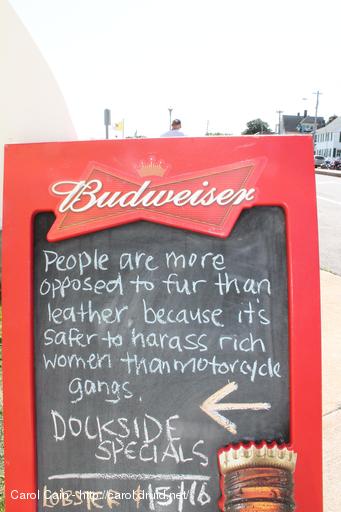 Budweiser
People are more
opposed to fur than
leather, because it's
safer to harass rich
women than motorcycle
gangs.
DOCKSIDE
SPECIALS
LOBSTER
Carol Cain - http://carol.druid.net/